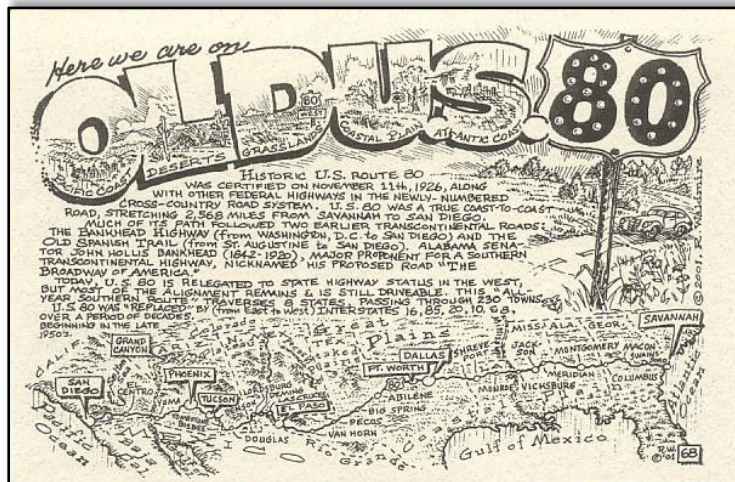 Here we are on
OLD U.S. 80
80
WEST
PACIFIC COAST
DESERTS
GRASSLANDS
COASTAL PLAIN
ATLANTIC COAST
HISTORIC U.S. ROUTE 80
WAS CERTIFIED ON NOVEMBER 11th, 1926, ALONG
WITH OTHER FEDERAL HIGHWAYS IN THE NEWLY-NUMBERED
CROSS-COUNTRY ROAD SYSTEM. U.S. 80 WAS A TRUE COAST-TO-COAST
ROAD, STRETCHING 2,568 MILES FROM SAVANNAH TO SAN DIEGO.
MUCH OF ITS PATH FOLLOWED TWO EARLIER TRANSCONTINENTAL ROADS:
THE BANKHEAD HIGHWAY (from WASHINGTON, D.C. to SAN DIEGO) AND THE
OLD SPANISH TRAIL (from ST. AUGUSTINE to SAN DIEGO). ALABAMA SENA-
TOR JOHN HOLLIS BANKHEAD (1842-1920), MAJOR PROPONENT FOR A SOUTHERN
TRANSCONTINENTAL HIGHWAY, NICKNAMED HIS PROPOSED ROAD "THE
BROADWAY OF AMERICA."
TODAY, U.S. 80 IS RELEGATED TO STATE HIGHWAY STATUS IN THE WEST,
BUT MOST OF THE ALIGNMENT REMAINS & IS STILL DRIVEABLE. THIS "ALL-
YEAR SOUTHERN ROUTE" TRAVERSES 8 STATES, PASSING THROUGH 230 TOWNS.
U.S. 80 WAS "REPLACED" BY (from East to West) INTERSTATES 16, 85, 20, 10, & 8.
OVER A PERIOD OF DECADES,
BEGINNING IN THE LATE
1950's.
CALIF.
GRAND
CANYON
ARIZ.
Colorado
TEX.
Great
Plains
MISS.
ALA.
GEOR.
SAVANNAH
SAN
DIEGO
EL
CENTRO
YUMA
PHOENIX
TUCSON
TOMBSTONE
BISBEE
DOUGLAS
LORDSBURG
DEMING
LAS CRUCES
EL PASO
VAN HORN
PECOS
BIG SPRING
ABILENE
80
FT. WORTH
DALLAS
SHREVE
PORT
MONROE
VICKSBURG
JACK-
SON
MERIDIAN
MONTGOMERY
COLUMBUS
MACON
SWAINS-
BORO
Pacific
Ocean
Baja
Cal.
Rio Grande
Gulf of Mexico
Atlantic
Ocean
R.W.
© '01
68